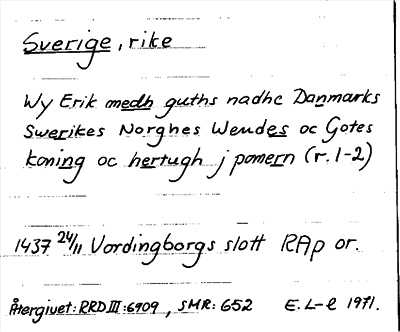 Sverige, rike
Wy Erik medh guths nadhe Danmarks
Swerikes Norghes Wendes oc Gotes
koning oc hertugh j pomern (r. 1-2)
1437 24/11 Vordingborgs slott RAp or.
Återgivet: RRD III: 6909, SMR: 652 E. L-l 1971.